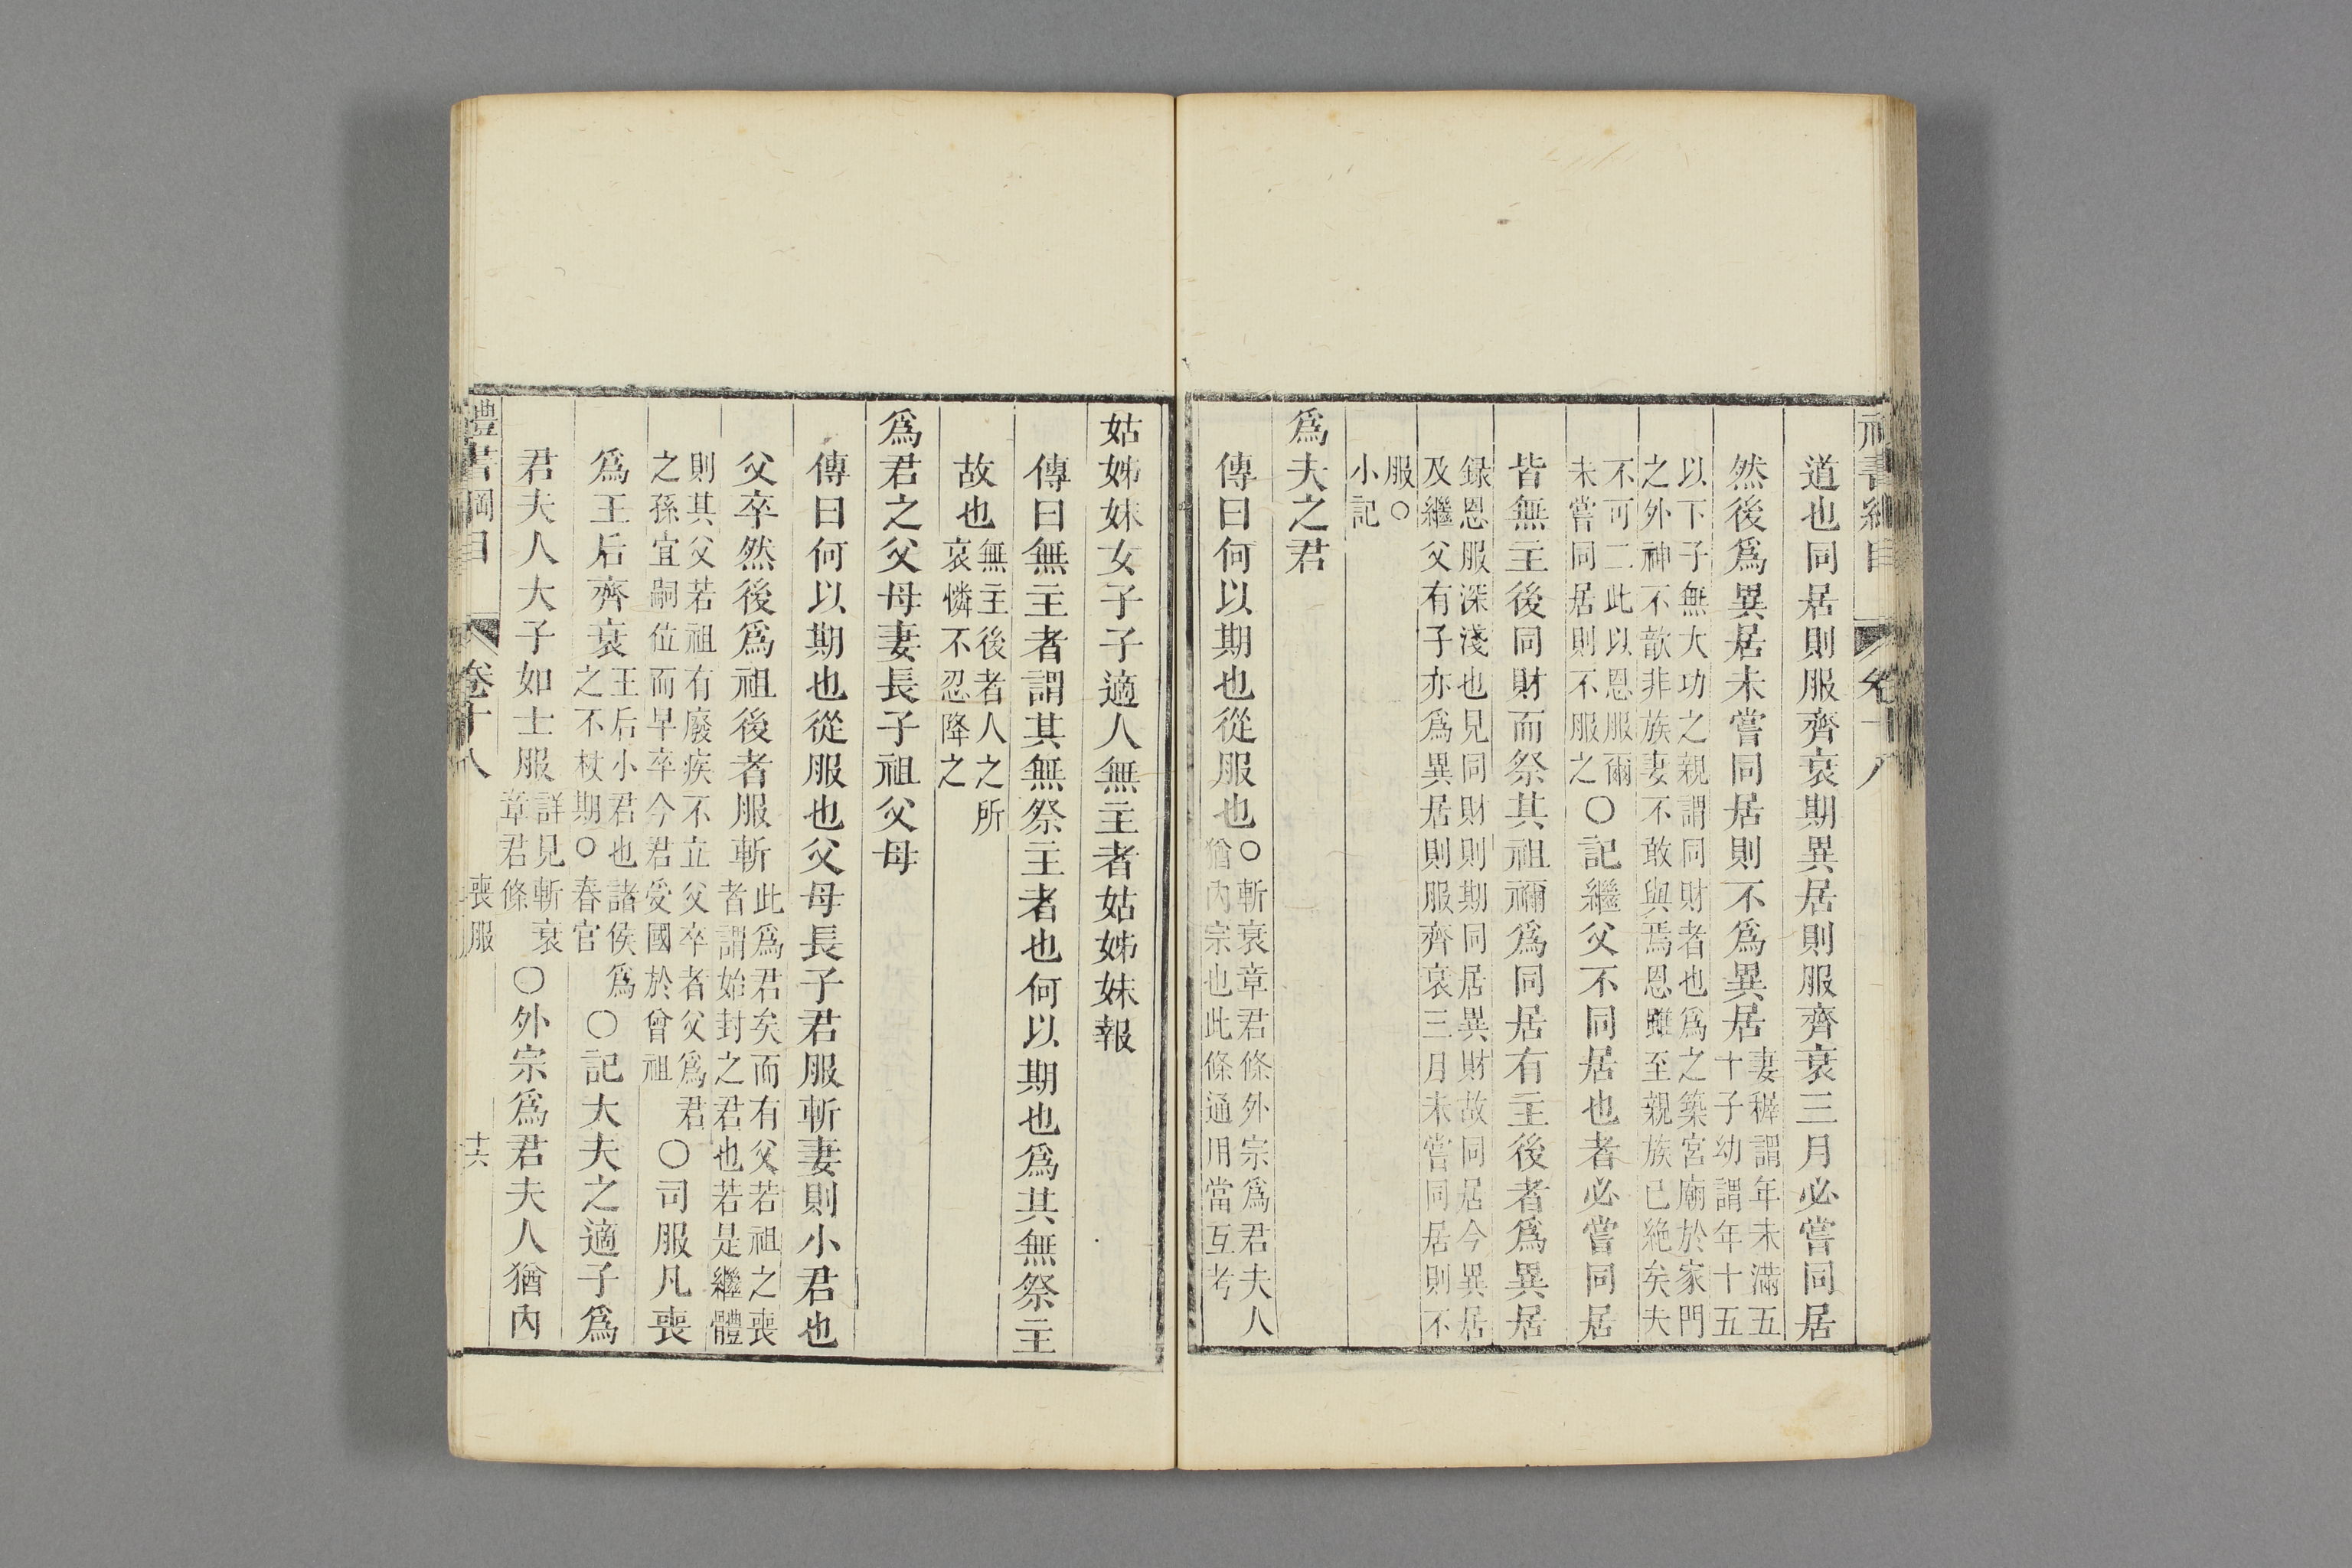 禮書綱目 卷十八
道也同居則服齊衰期異居則服齊衰三月必嘗同居
然後爲異居未嘗同居則不爲異居妻穉謂年未滿五十子幼謂年十五
以下子無大功之親謂同財者也爲之築宮廟於家門之外神不歆非族妻不敢與焉恩雖至親族已絶矣夫
不可二此以恩服爾未嘗同居則不服之○記繼父不同居也者必嘗同居
皆無主後同財而祭其祖禰爲同居有主後者爲異居
録恩服深淺也見同財則期同居異財故同居今異居及繼父有子亦爲異居則服齊衰三月未嘗同居則不
服○小記
爲夫之君
傳曰何以期也從服也○斬衰章君條外宗爲君夫人猶內宗也此條通用當互考
姑姊妹女子子適人無主者姑姊妹報
傳曰無主者謂其無祭主者也何以期也爲其無祭主
故也無主後者人之所哀憐不忍降之
爲君之父母妻長子祖父母
傳曰何以期也從服也父母長子君服斬妻則小君也
父卒然後爲祖後者服斬此爲君矣而有父若祖之喪者謂始封之君也若是繼體
則其父若祖有廢疾不立父卒者父爲君之孫宜嗣位而早卒今君受國於曾祖○司服凡喪
爲王后齊衰王后小君也諸侯爲之不杖期○春官○記大夫之適子爲
君夫人大子如士服詳見斬衰章君條○外宗爲君夫人猶內
禮書綱目 卷十八 喪服 十六